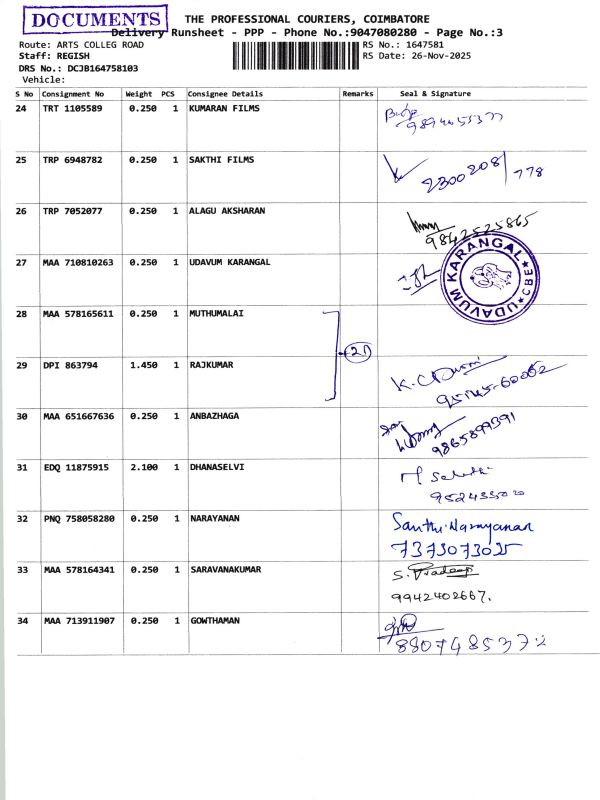 DOCUMENTS
THE PROFESSIONAL COURIERS, COIMBATORE
Delivery Runsheet - PPP - Phone No.:9047080280 - Page No.:3
Route: ARTS COLLEG ROAD
RS No.: 1647581
Staff: REGISH
RS Date: 26-Nov-2025
DRS No.: DCJB164758103
Vehicle:
S No Consignment No Weight PCS Consignee Details Remarks Seal & Signature
24 TRT 1105589 0.250 1 KUMARAN FILMS
25 TRP 6948782 0.250 1 SAKTHI FILMS
2300208/778
26 TRP 7052077 0.250 1 ALAGU AKSHARAN
9842525865
27 MAA 710810263 0.250 1 UDAVUM KARANGAL
UDAVUM KARANGAL
CBE
28 MAA 578165611 0.250 1 MUTHUMALAI
29 DPI 863794 1.450 1 RAJKUMAR
30 MAA 651667636 0.250 1 ANBAZHAGA
9865899391
31 EDQ 11875915 2.100 1 DHANASELVI
32 PNQ 758058280 0.250 1 NARAYANAN Santhi.Narayanan
7373073025
33 MAA 578164341 0.250 1 SARAVANAKUMAR S. Pradeep
9942402667.
34 MAA 713911907 0.250 1 GOWTHAMAN